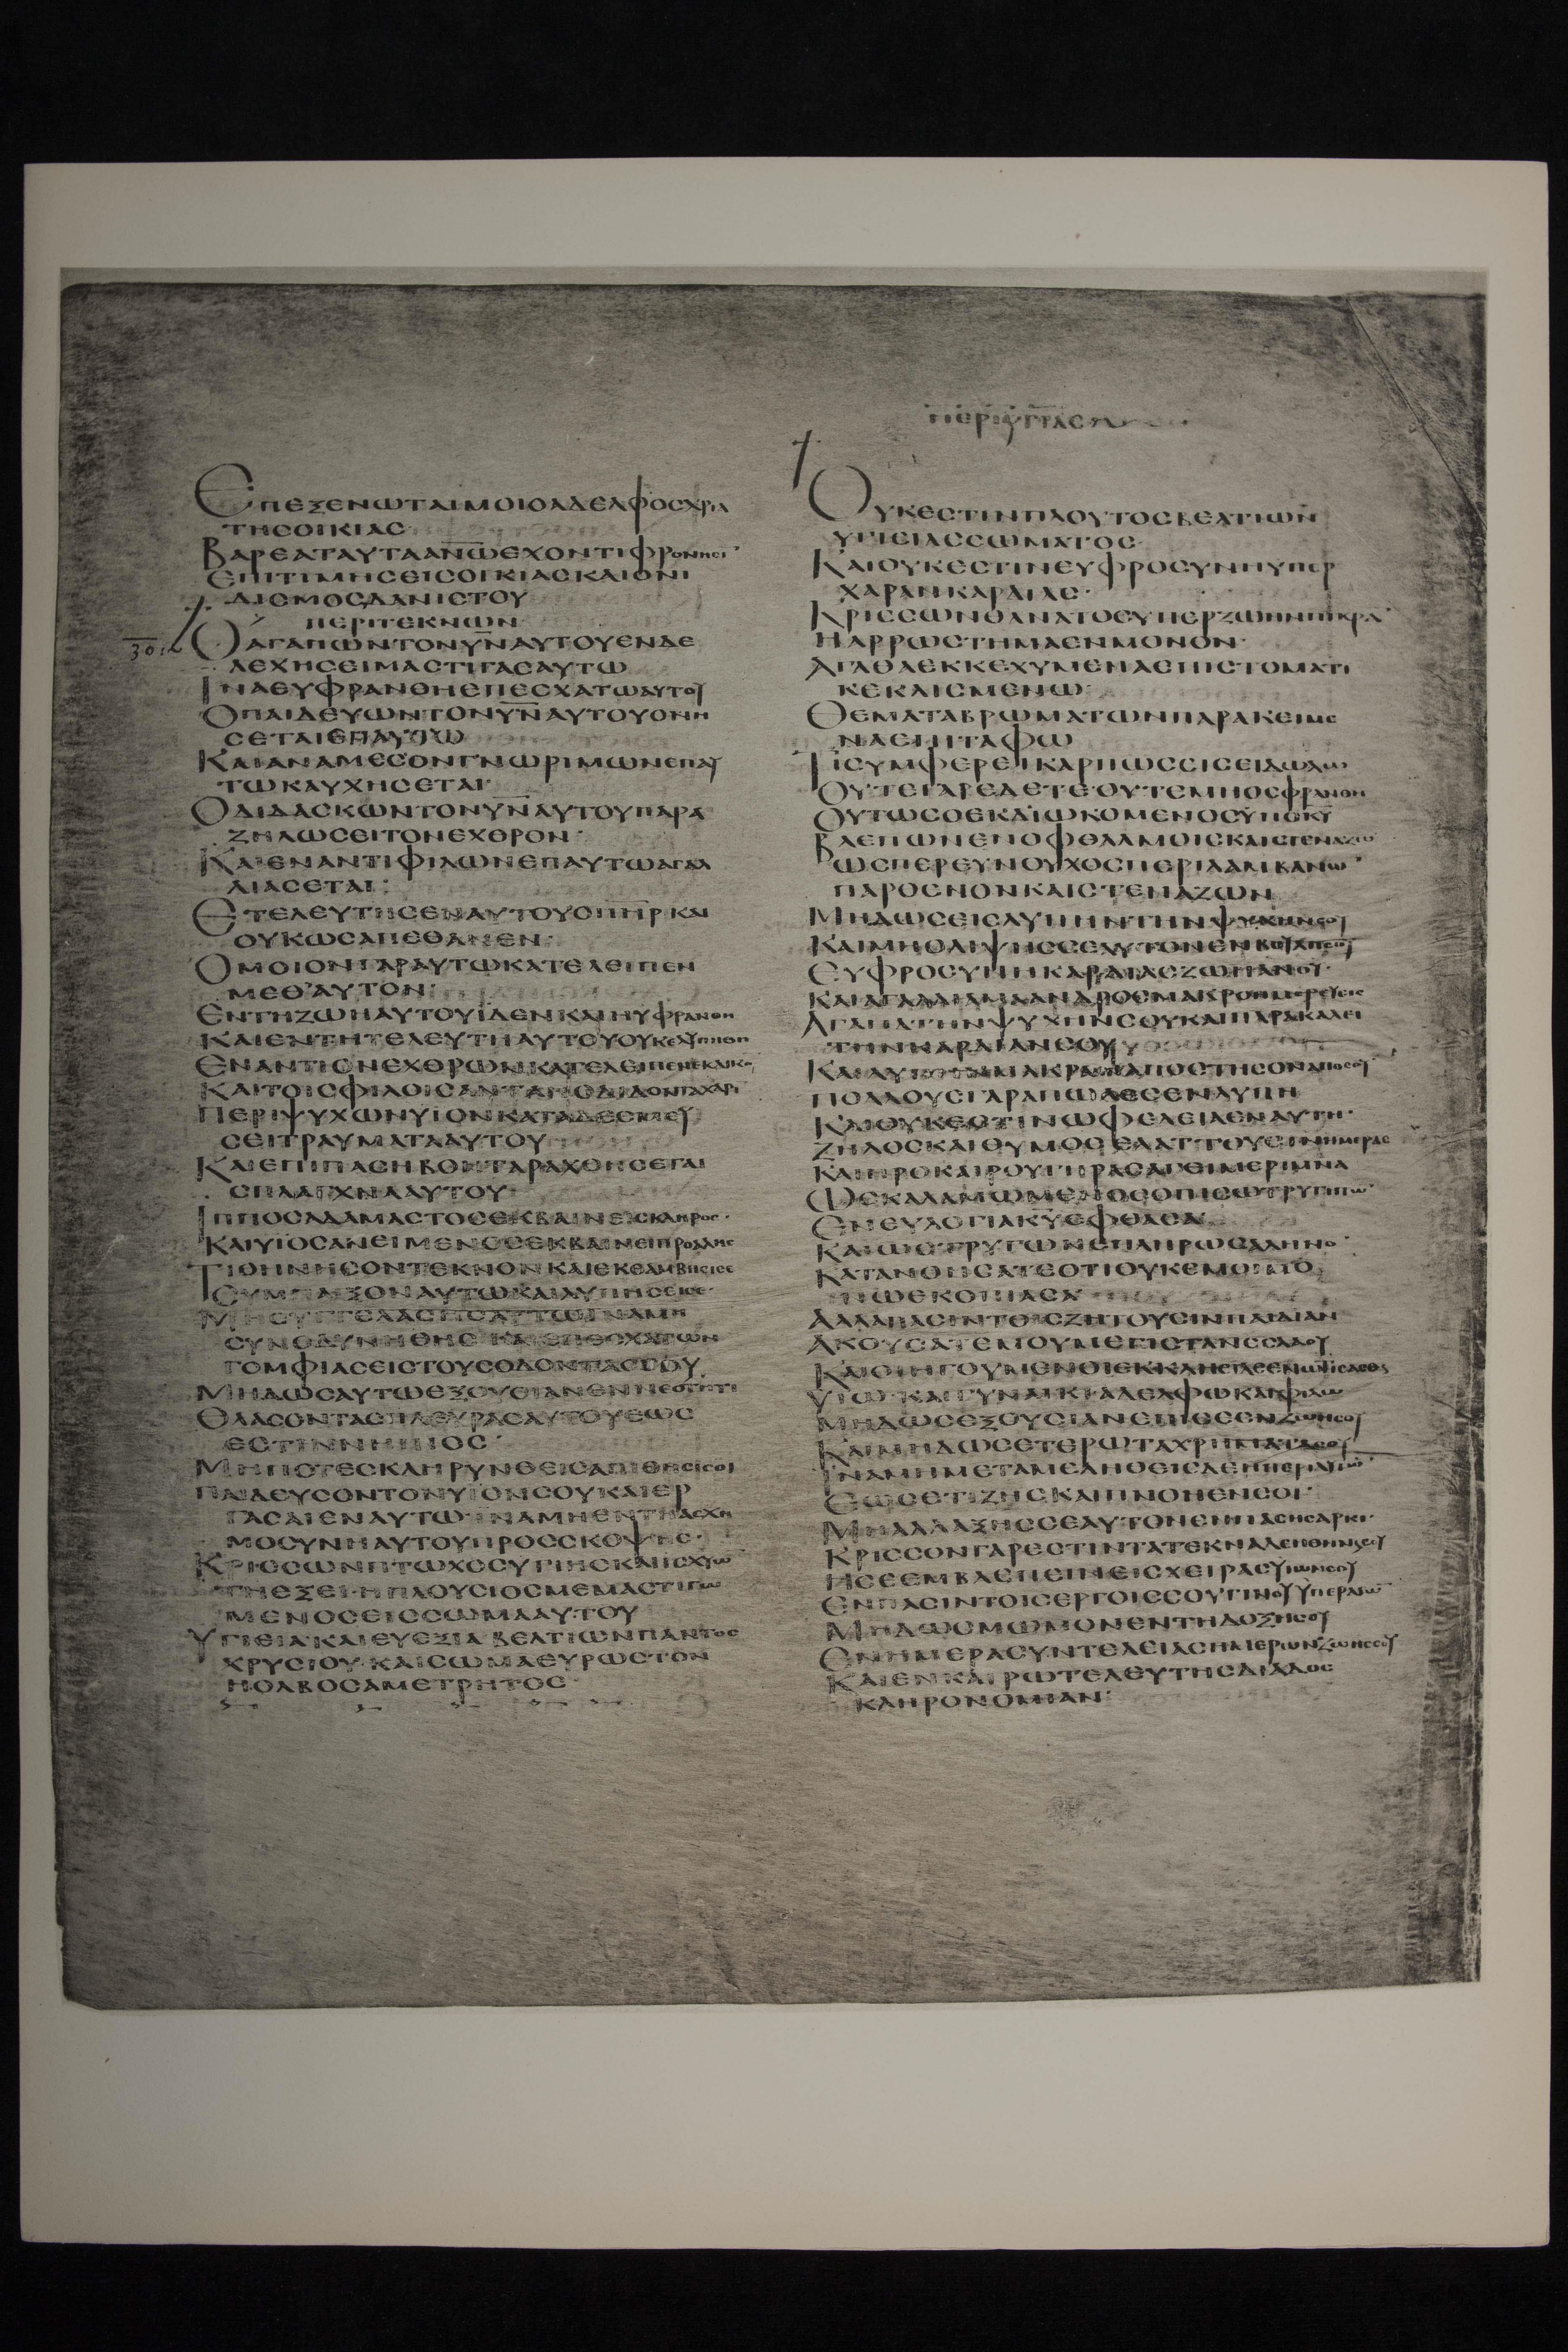 ΕΠΕΞΕΝΩΤΑΙΜΟΙΟΑΔΕΛΦΟΣΧΡΙΑ
ΤΗΣΟΙΚΙΑΣ
ΒΑΡΕΑΤΑΥΤΑΑΝΩΕΧΟΝΤΙΦΡΟΝΗΣΙ
ΕΠΙΤΙΜΗΣΕΙΣΟΙΚΙΑΣΚΑΙΟΝΙ
ΔΙΣΜΟΣΔΑΝΙΣΤΟΥ
ΠΕΡΙΤΕΚΝΩΝ
ΟΑΓΑΠΩΝΤΟΝΥΝΑΥΤΟΥΕΝΔΕ
ΛΕΧΗΣΕΙΜΑΣΤΙΓΑΣΑΥΤΩ
ΙΝΑΕΥΦΡΑΝΘΗΕΠΕΣΧΑΤΩΑΥΤΟΥ
ΟΠΑΙΔΕΥΩΝΤΟΝΥΝΑΥΤΟΥΟΝΗ
ΣΕΤΑΙΕΠΑΥΤΩ
ΚΑΙΑΝΑΜΕΣΟΝΓΝΩΡΙΜΩΝΕΠΑΥ
ΤΩΚΑΥΧΗΣΕΤΑΙ
ΟΔΙΔΑΣΚΩΝΤΟΝΥΝΑΥΤΟΥΠΑΡΑ
ΖΗΛΩΣΕΙΤΟΝΕΧΘΡΟΝ
ΚΑΙΕΝΑΝΤΙΦΙΛΩΝΕΠΑΥΤΩΑΓΑΛ
ΛΙΑΣΕΤΑΙ
ΕΤΕΛΕΥΤΗΣΕΝΑΥΤΟΥΟΠΗΡΚΑΙ
ΟΥΚΩΣΑΠΕΘΑΝΕΝ
ΟΜΟΙΟΝΓΑΡΑΥΤΩΚΑΤΕΛΕΙΠΕΝ
ΜΕΘΑΥΤΟΝ
ΕΝΤΗΖΩΗΑΥΤΟΥΪΔΕΝΚΑΙΗΥΦΡΑΝΘΗ
ΚΑΙΕΝΤΗΤΕΛΕΥΤΗΑΥΤΟΥΟΥΚΕΛΥΠΗΘΗ
ΕΝΑΝΤΙΟΝΕΧΘΡΩΝΚΑΤΕΛΕΙΠΕΝΕΚΔΙΚΟ
ΚΑΙΤΟΙΣΦΙΛΟΙΣΑΝΤΑΠΟΔΙΔΟΝΤΑΧΑΡΙ
ΠΕΡΙΨΥΧΩΝΥΙΟΝΚΑΤΑΔΕΣΜΕΥ
ΣΕΙΤΡΑΥΜΑΤΑΑΥΤΟΥ
ΚΑΙΕΠΙΠΑΣΗΒΟΗΤΑΡΑΧΘΗΣΕΤΑΙ
ΣΠΛΑΓΧΝΑΑΥΤΟΥ
ΙΠΠΟΣΑΔΑΜΑΣΤΟΣΕΚΒΑΙΝΕΙΣΚΛΗΡΟΣ
ΚΑΙΥΙΟΣΑΝΕΙΜΕΝΟΣΕΚΒΑΙΝΕΙΠΡΟΑΛΗΣ
ΤΙΘΗΝΗΣΟΝΤΕΚΝΟΝΚΑΙΕΚΘΑΜΒΗΣΙΣΕ
ΣΥΜΠΑΙΞΟΝΑΥΤΩΚΑΙΛΥΠΗΣΕΙΣΕ
ΜΗΣΥΓΓΕΛΑΣΗΣΑΥΤΩΙΝΑΜΗ
ΣΥΝΟΔΥΝΗΘΗΣΚΑΙΕΠΕΣΧΑΤΩΝ
ΓΟΜΦΙΑΣΕΙΣΤΟΥΣΟΔΟΝΤΑΣΣΟΥ
ΜΗΔΩΣΑΥΤΩΕΞΟΥΣΙΑΝΕΝΝΕΟΤΗΤΙ
ΘΛΑΣΟΝΤΑΣΠΛΕΥΡΑΣΑΥΤΟΥΕΩΣ
ΕΣΤΙΝΝΗΠΙΟΣ
ΜΗΠΟΤΕΣΚΛΗΡΥΝΘΕΙΣΑΠΙΘΗΣΙΣΟΙ
ΠΑΙΔΕΥΣΟΝΤΟΝΥΙΟΝΣΟΥΚΑΙΕΡ
ΓΑΣΑΙΕΝΑΥΤΩΙΝΑΜΗΕΝΤΗΑΣΧΗ
ΜΟΣΥΝΗΑΥΤΟΥΠΡΟΣΚΟΨΗΣ
ΚΡΙΣΣΩΝΠΤΩΧΟΣΥΓΙΗΣΚΑΙΙΣΧΥΩ
ΤΗΕΞΕΙΗΠΛΟΥΣΙΟΣΜΕΜΑΣΤΙΓΩ
ΜΕΝΟΣΕΙΣΣΩΜΑΑΥΤΟΥ
ΥΓΙΕΙΑΚΑΙΕΥΕΞΙΑΒΕΛΤΙΩΝΠΑΝΤΟΣ
ΧΡΥΣΙΟΥΚΑΙΣΩΜΑΕΥΡΩΣΤΟΝ
ΗΟΛΒΟΣΑΜΕΤΡΗΤΟΣ
ΟΥΚΕΣΤΙΝΠΛΟΥΤΟΣΒΕΛΤΙΩΝ
ΥΓΙΕΙΑΣΣΩΜΑΤΟΣ
ΚΑΙΟΥΚΕΣΤΙΝΕΥΦΡΟΣΥΝΗΥΠΕΡ
ΧΑΡΑΝΚΑΡΔΙΑΣ
ΚΡΙΣΣΩΝΘΑΝΑΤΟΣΥΠΕΡΖΩΗΝΠΙΚΡΑ
ΗΑΡΡΩΣΤΗΜΑΕΝΜΟΝΟΝ
ΑΓΑΘΑΕΚΚΕΧΥΜΕΝΑΕΠΙΣΤΟΜΑΤΙ
ΚΕΚΛΙΣΜΕΝΩ
ΘΕΜΑΤΑΒΡΩΜΑΤΩΝΠΑΡΑΚΕΙΜΕ
ΝΑΕΠΙΤΑΦΩ
ΤΙΣΥΜΦΕΡΕΙΚΑΡΠΩΣΙΣΕΙΔΩΛΩ
ΟΥΤΕΓΑΡΕΔΕΤΕΟΥΤΕΜΗΟΣΦΡΑΝΘΗ
ΟΥΤΩΣΟΕΚΔΙΩΚΟΜΕΝΟΣΥΠΟΚΥ
ΒΛΕΠΩΝΕΝΟΦΘΑΛΜΟΙΣΚΑΙΣΤΕΝΑΖΩ
ΩΣΠΕΡΕΥΝΟΥΧΟΣΠΕΡΙΛΑΜΒΑΝΩ
ΠΑΡΘΕΝΟΝΚΑΙΣΤΕΝΑΖΩΝ
ΜΗΔΩΣΕΙΣΛΥΠΗΝΤΗΝΨΥΧΗΝΣΟΥ
ΚΑΙΜΗΘΛΙΨΗΣΣΕΑΥΤΟΝΕΝΒΟΥΛΗΣΟΥ
ΕΥΦΡΟΣΥΝΗΚΑΡΔΙΑΣΖΩΗΑΝΟΥ
ΚΑΙΑΓΑΛΛΙΑΜΑΑΝΔΡΟΣΜΑΚΡΟΗΜΕΡΕΥΣΙΣ
ΑΓΑΠΑΤΗΝΨΥΧΗΝΣΟΥΚΑΙΠΑΡΑΚΑΛΕΙ
ΤΗΝΚΑΡΔΙΑΝΣΟΥ
ΚΑΙΛΥΠΗΝΜΑΚΡΑΝΑΠΟΣΤΗΣΟΝΑΠΟΣΟΥ
ΠΟΛΛΟΥΣΓΑΡΑΠΩΛΕΣΕΝΛΥΠΗ
ΚΑΙΟΥΚΕΣΤΙΝΩΦΕΛΕΙΑΕΝΑΥΤΗ
ΖΗΛΟΣΚΑΙΘΥΜΟΣΕΛΑΤΤΟΥΣΙΝΗΜΕΡΑΣ
ΚΑΙΠΡΟΚΑΙΡΟΥΓΗΡΑΣΑΓΕΙΜΕΡΙΜΝΑ
ΩΣΚΑΛΑΜΩΜΕΝΟΣΟΠΙΣΩΤΡΥΓΗΤΩ
ΕΝΕΥΛΟΓΙΑΚΥΕΦΘΑΣΑ
ΚΑΙΩΣΤΡΥΓΩΝΕΠΛΗΡΩΣΑΛΗΝΟ
ΚΑΤΑΝΟΗΣΑΤΕΟΤΙΟΥΚΕΜΟΙΜΟ
ΝΩΕΚΟΠΙΑΣΑ
ΑΛΛΑΠΑΣΙΝΤΟΙΣΖΗΤΟΥΣΙΝΠΑΙΔΙΑΝ
ΑΚΟΥΣΑΤΕΜΟΥΜΕΓΙΣΤΑΝΕΣΛΑΟΥ
ΚΑΙΟΙΗΓΟΥΜΕΝΟΙΕΚΚΛΗΣΙΑΣΕΝΩΤΙΣΑΣΘΕ
ΥΙΩΚΑΙΓΥΝΑΙΚΙΑΔΕΛΦΩΚΑΙΦΙΛΩ
ΜΗΔΩΣΕΞΟΥΣΙΑΝΕΠΙΣΕΕΝΖΩΗΣΟΥ
ΚΑΙΜΗΔΩΣΕΤΕΡΩΤΑΧΡΗΜΑΤΑΣΟΥ
ΙΝΑΜΗΜΕΤΑΜΕΛΗΘΕΙΣΔΕΗΠΕΡΙΑΥΤΩ
ΕΩΣΕΤΙΖΗΣΚΑΙΠΝΟΗΕΝΣΟΙ
ΜΗΑΛΛΑΞΗΣΣΕΑΥΤΟΝΕΝΠΑΣΗΣΑΡΚΙ
ΚΡΙΣΣΟΝΓΑΡΕΣΤΙΝΤΑΤΕΚΝΑΔΕΗΘΗΝΑΙΣΟΥ
ΗΣΕΕΜΒΛΕΠΕΙΝΕΙΣΧΕΙΡΑΣΥΙΩΝΣΟΥ
ΕΝΠΑΣΙΝΤΟΙΣΕΡΓΟΙΣΣΟΥΓΙΝΟΥΥΠΕΡΑΓΩ
ΜΗΔΩΣΜΩΜΟΝΕΝΤΗΔΟΞΗΣΟΥ
ΕΝΗΜΕΡΑΣΥΝΤΕΛΕΙΑΣΗΜΕΡΩΝΖΩΗΣΣΟΥ
ΚΑΙΕΝΚΑΙΡΩΤΕΛΕΥΤΗΣΔΙΑΔΟΣ
ΚΛΗΡΟΝΟΜΙΑΝ